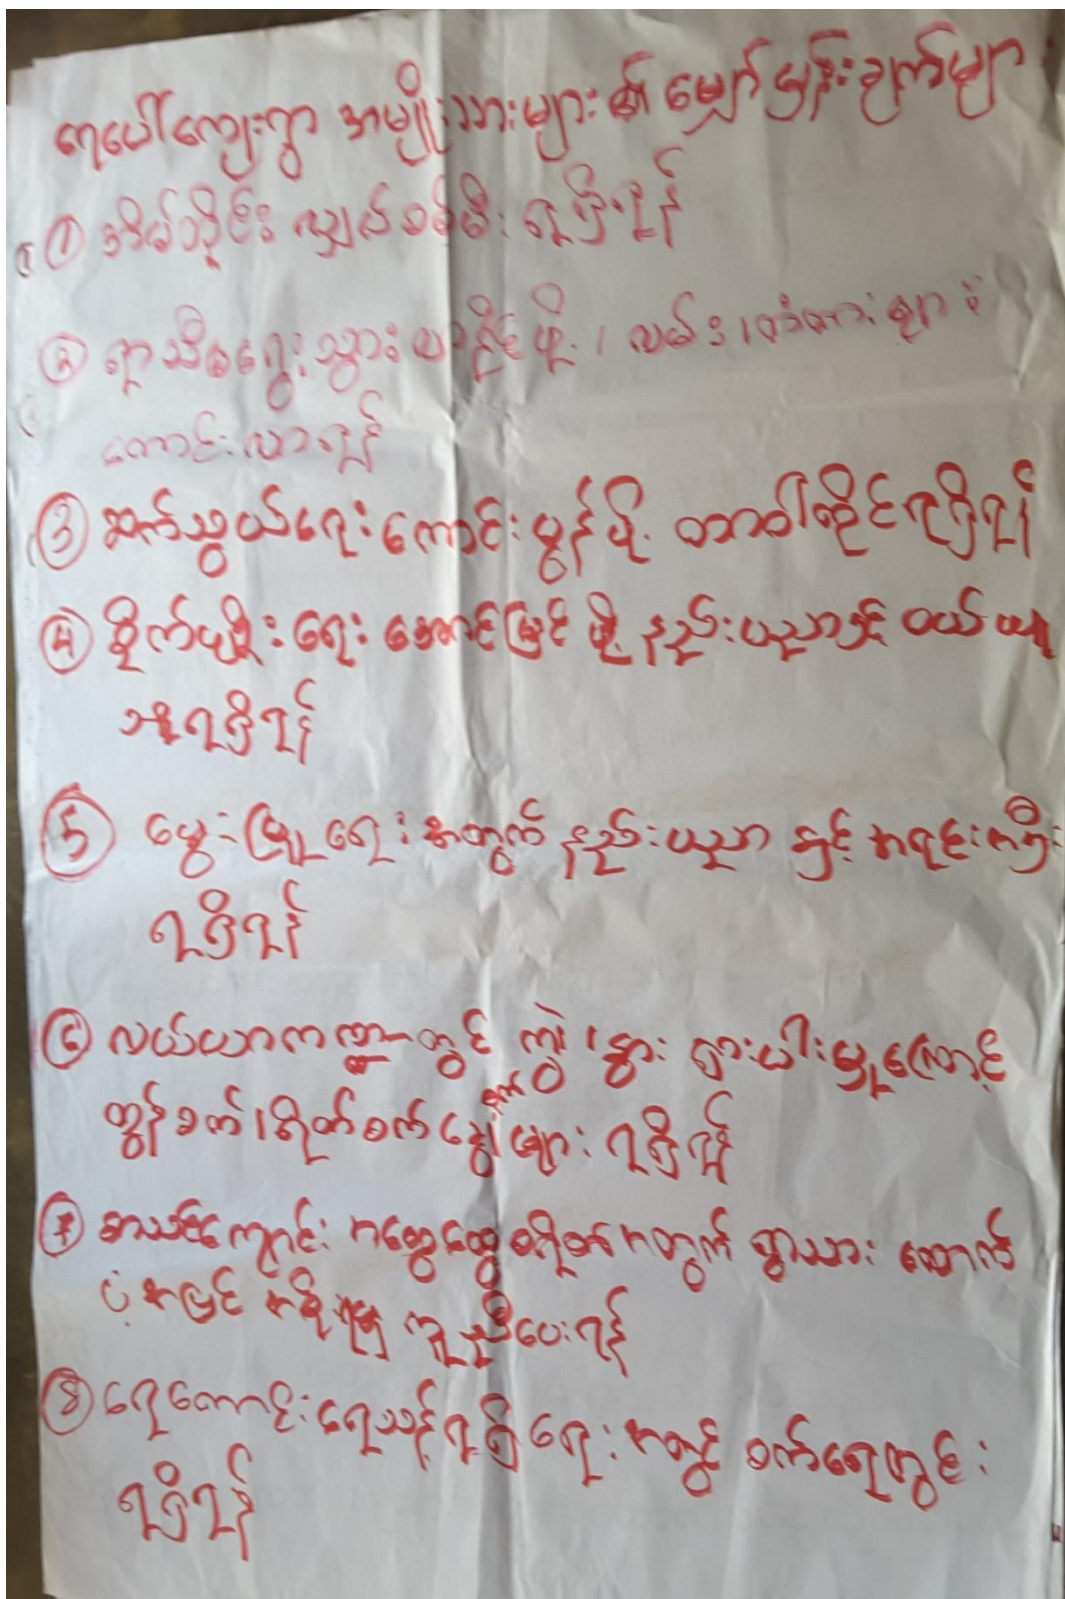 ရေပေါ်ကျေးရွာ အမျိုးသားများ၏ မျှော်မှန်းချက်များ
① အိမ်တိုင်း လျှပ်စစ်မီး ရရှိရန်
② ရာသီမရွေး သွားလာနိုင်ဖို့ / လမ်း / တံတားများ
ကောင်းလာရန်
③ ဆက်သွယ်ရေး ကောင်းမွန်ဖို့ တာဝါတိုင်ရရှိရန်
④ စိုက်ပျိုးရေး အောင်မြင်ဖို့ နည်းပညာနှင့် လယ်ယာ
ရရှိရန်
⑤ မွေးမြူရေးအတွက် နည်းပညာ နှင့် အရင်းအနှီး
ရရှိရန်
⑥ လယ်ယာကဏ္ဍတွင် ကျွဲ / နွား ရှားပါးမှုကြောင့်
ထွန်စက် / ရိတ်စက် ချွေစက်များ ရရှိရန်
⑦ စာသင်ကျောင်း အထွေထွေစရိတ်အတွက် ရွာသား ထောက်
ပံ့အပြင် ကူညီပေးရန်
⑧ ရေကောင်းရေသန့်ရရှိရေး အတွက် စက်ရေတွင်း
ရရှိရန်